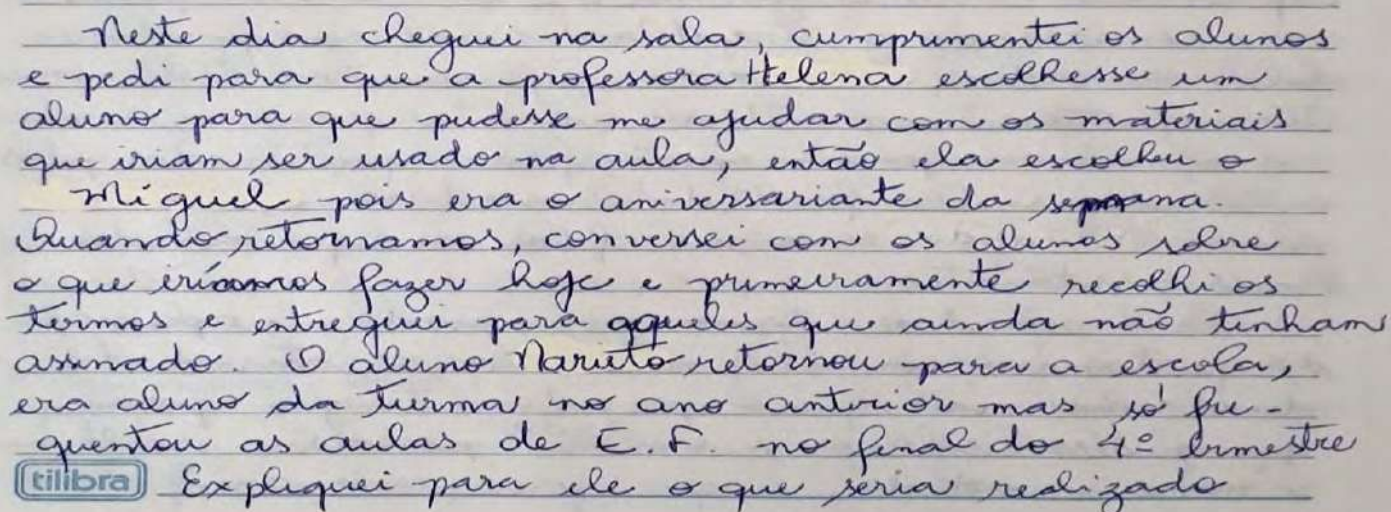 Neste dia cheguei na sala, cumprimentei os alunos
e pedi para que a professora Helena escolhesse um
aluno para que pudesse me ajudar com os materiais
que iriam ser usado na aula, então ela escolheu o
Miguel pois era o aniversariante da semana.
Quando retornamos, conversei com os alunos sobre
o que iríamos fazer hoje e primeiramente recolhi os
termos e entreguei para aqueles que ainda não tinham
assinado. O aluno Naruto retornou para a escola,
era aluno da turma no ano anterior mas só fre-
quentou as aulas de E.F. no final do 4º bimestre
tilibra Expliquei para ele o que seria realizado